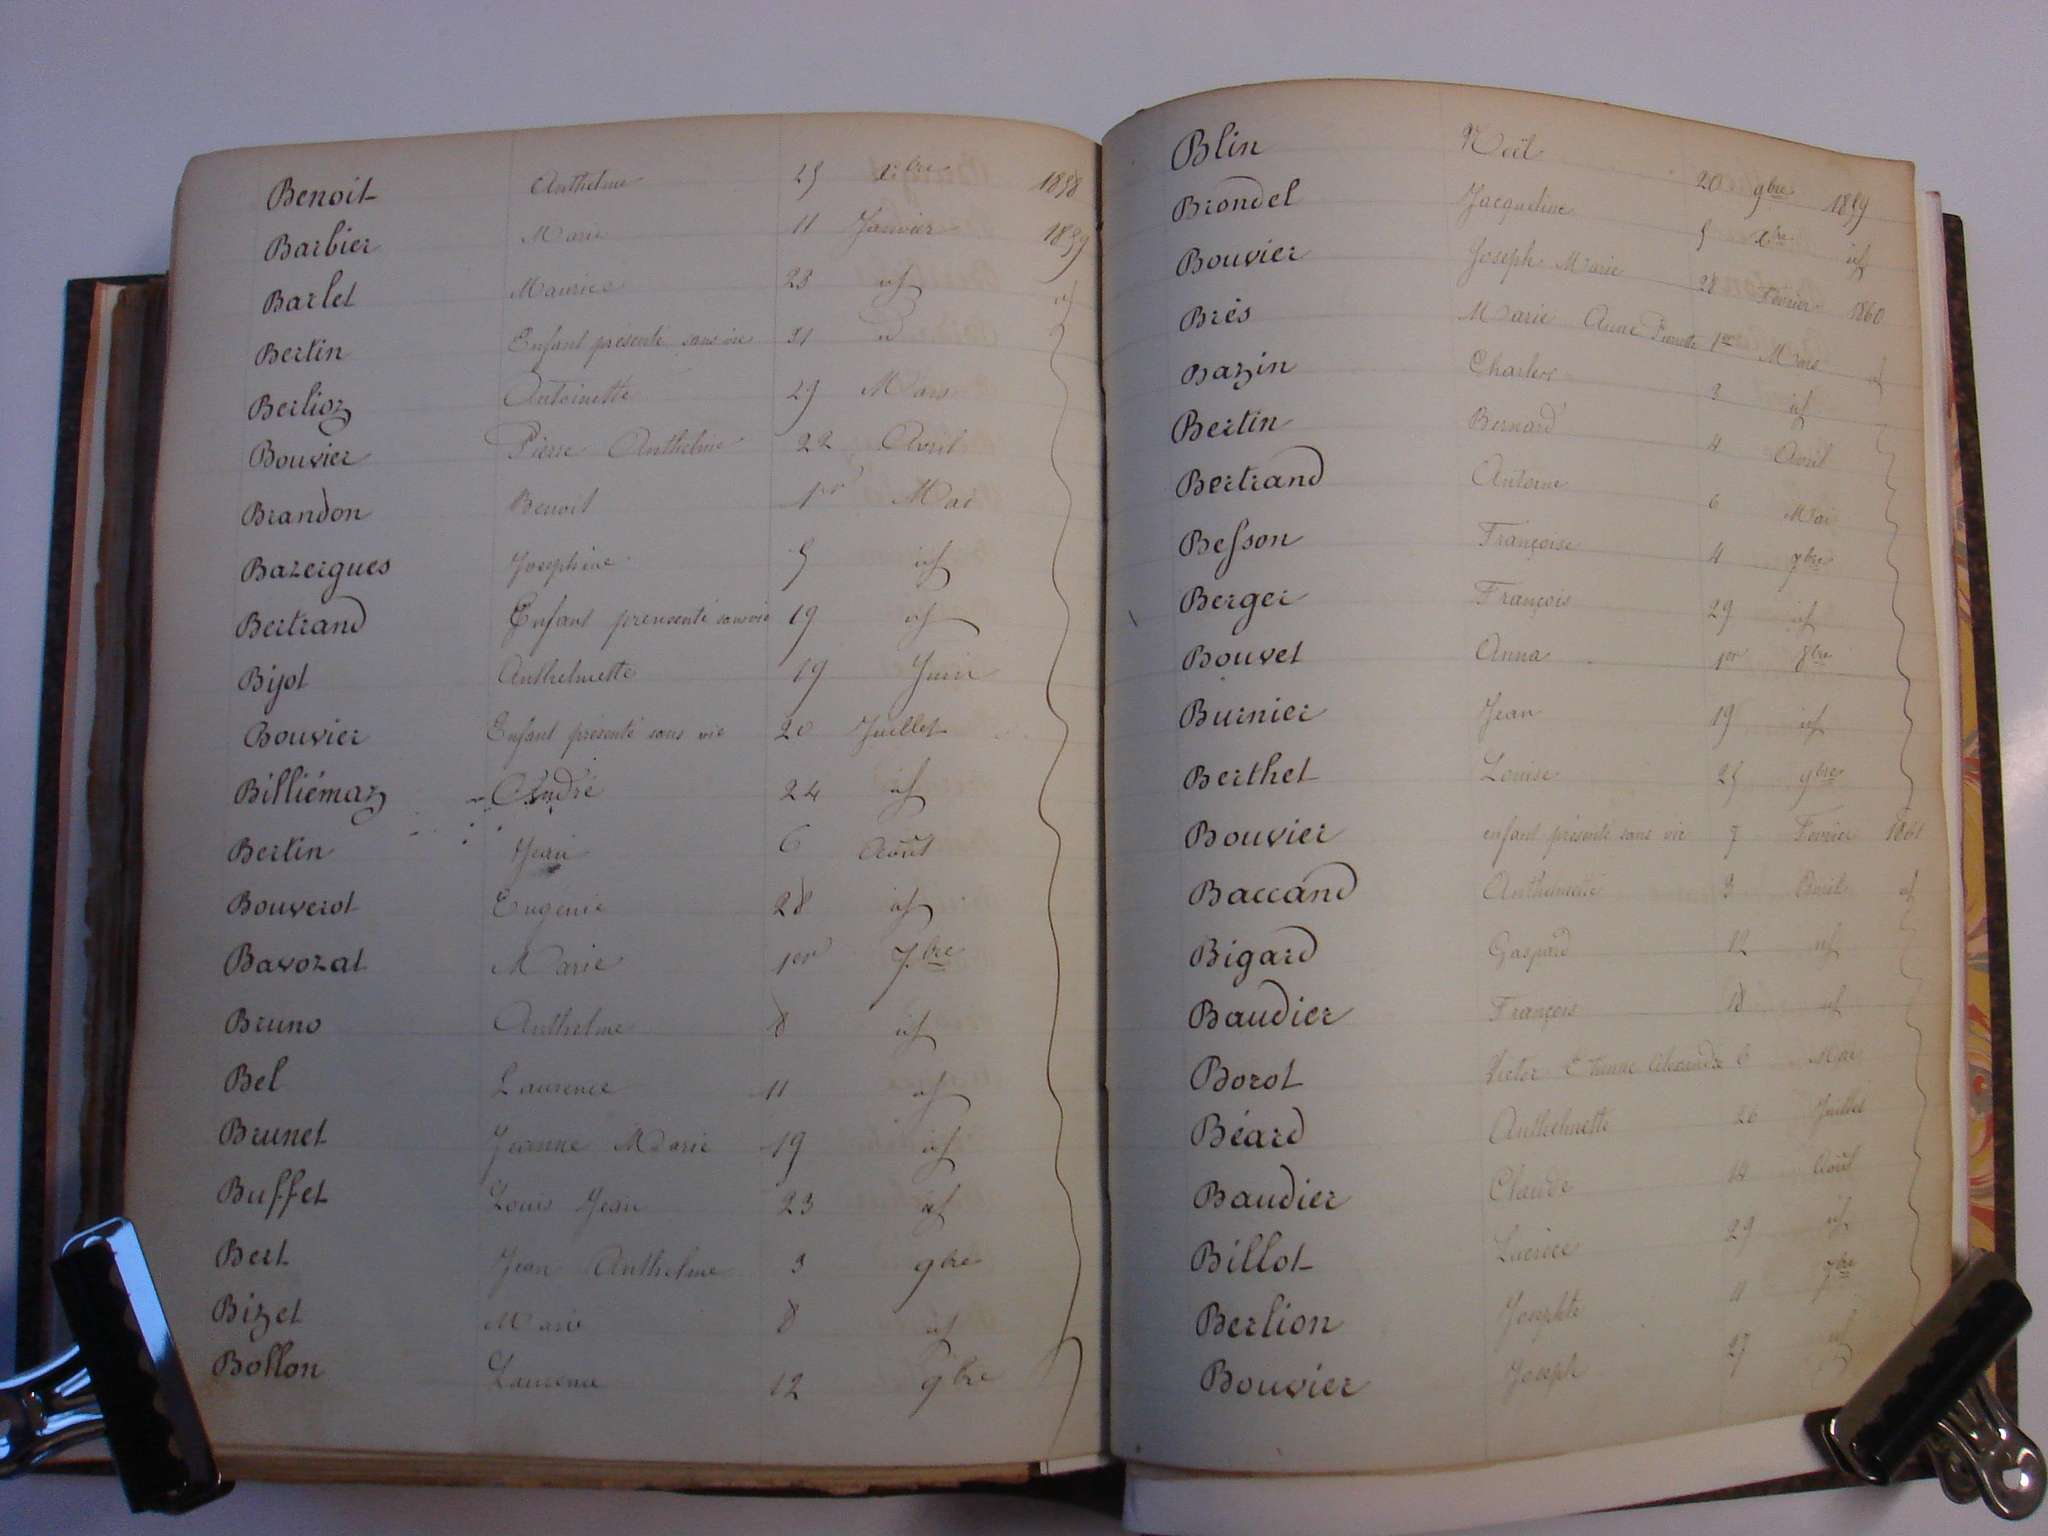 Benoit Anthelme 25 xbre 1858
Barbier Marie 11 Janvier 1859
Barlet Maurice 23 id id
Bertin Enfant présenté sans vie 31 id
Berlioz Antoinette 29 Mars
Bouvier Pierre Anthelme 22 Avril
Brandon Benoit 1er Mai
Bazergues Josephine 5 id
Bertrand Enfant prensenté sans vie 19 id
Bijot Anthelmette 19 Juin
Bouvier Enfant présenté sans vie 20 Juillet
Billiémaz André 24 id
Bertin Jean 6 Août
Bouverot Eugénie 28 id
Bavozat Marie 1er 7bre
Bruno Anthelme 8 id
Bel Laurence 11 id
Brunet Jeanne Marie 19 id
Buffet Louis Jean 23 id
Bert Jean Anthelme 3 9bre
Bizet Marie 8 id
Bollon Laurence 12 9bre
Blin Noël 20 9bre 1859
Brondel Jacqueline 5 xbre id
Bouvier Joseph Marie 28 Février 1860
Brés Marie Anne Pierrette 1er Mars id
Bazin Charles 3 id
Bertin Bernard 4 Avril
Bertrand Antoine 6 Mai
Besson Françoise 4 7bre
Berger François 29 id
Bouvet Anna 1er 8bre
Burnier Jean 19 id
Berthet Louise 25 9bre
Bouvier enfant présenté sans vie 7 Février 1861
Baccand Anthelmette 3 Avril id
Bigard Gaspard 12 id
Baudier François 18 id
Borot Victor Etienne Alexandre 6 Mai
Béard Anthelmette 26 Juillet
Baudier Claude 14 Août
Billot Lucrèce 29 id
Berlion Josephte 11 7bre
Bouvier Joseph 27 id